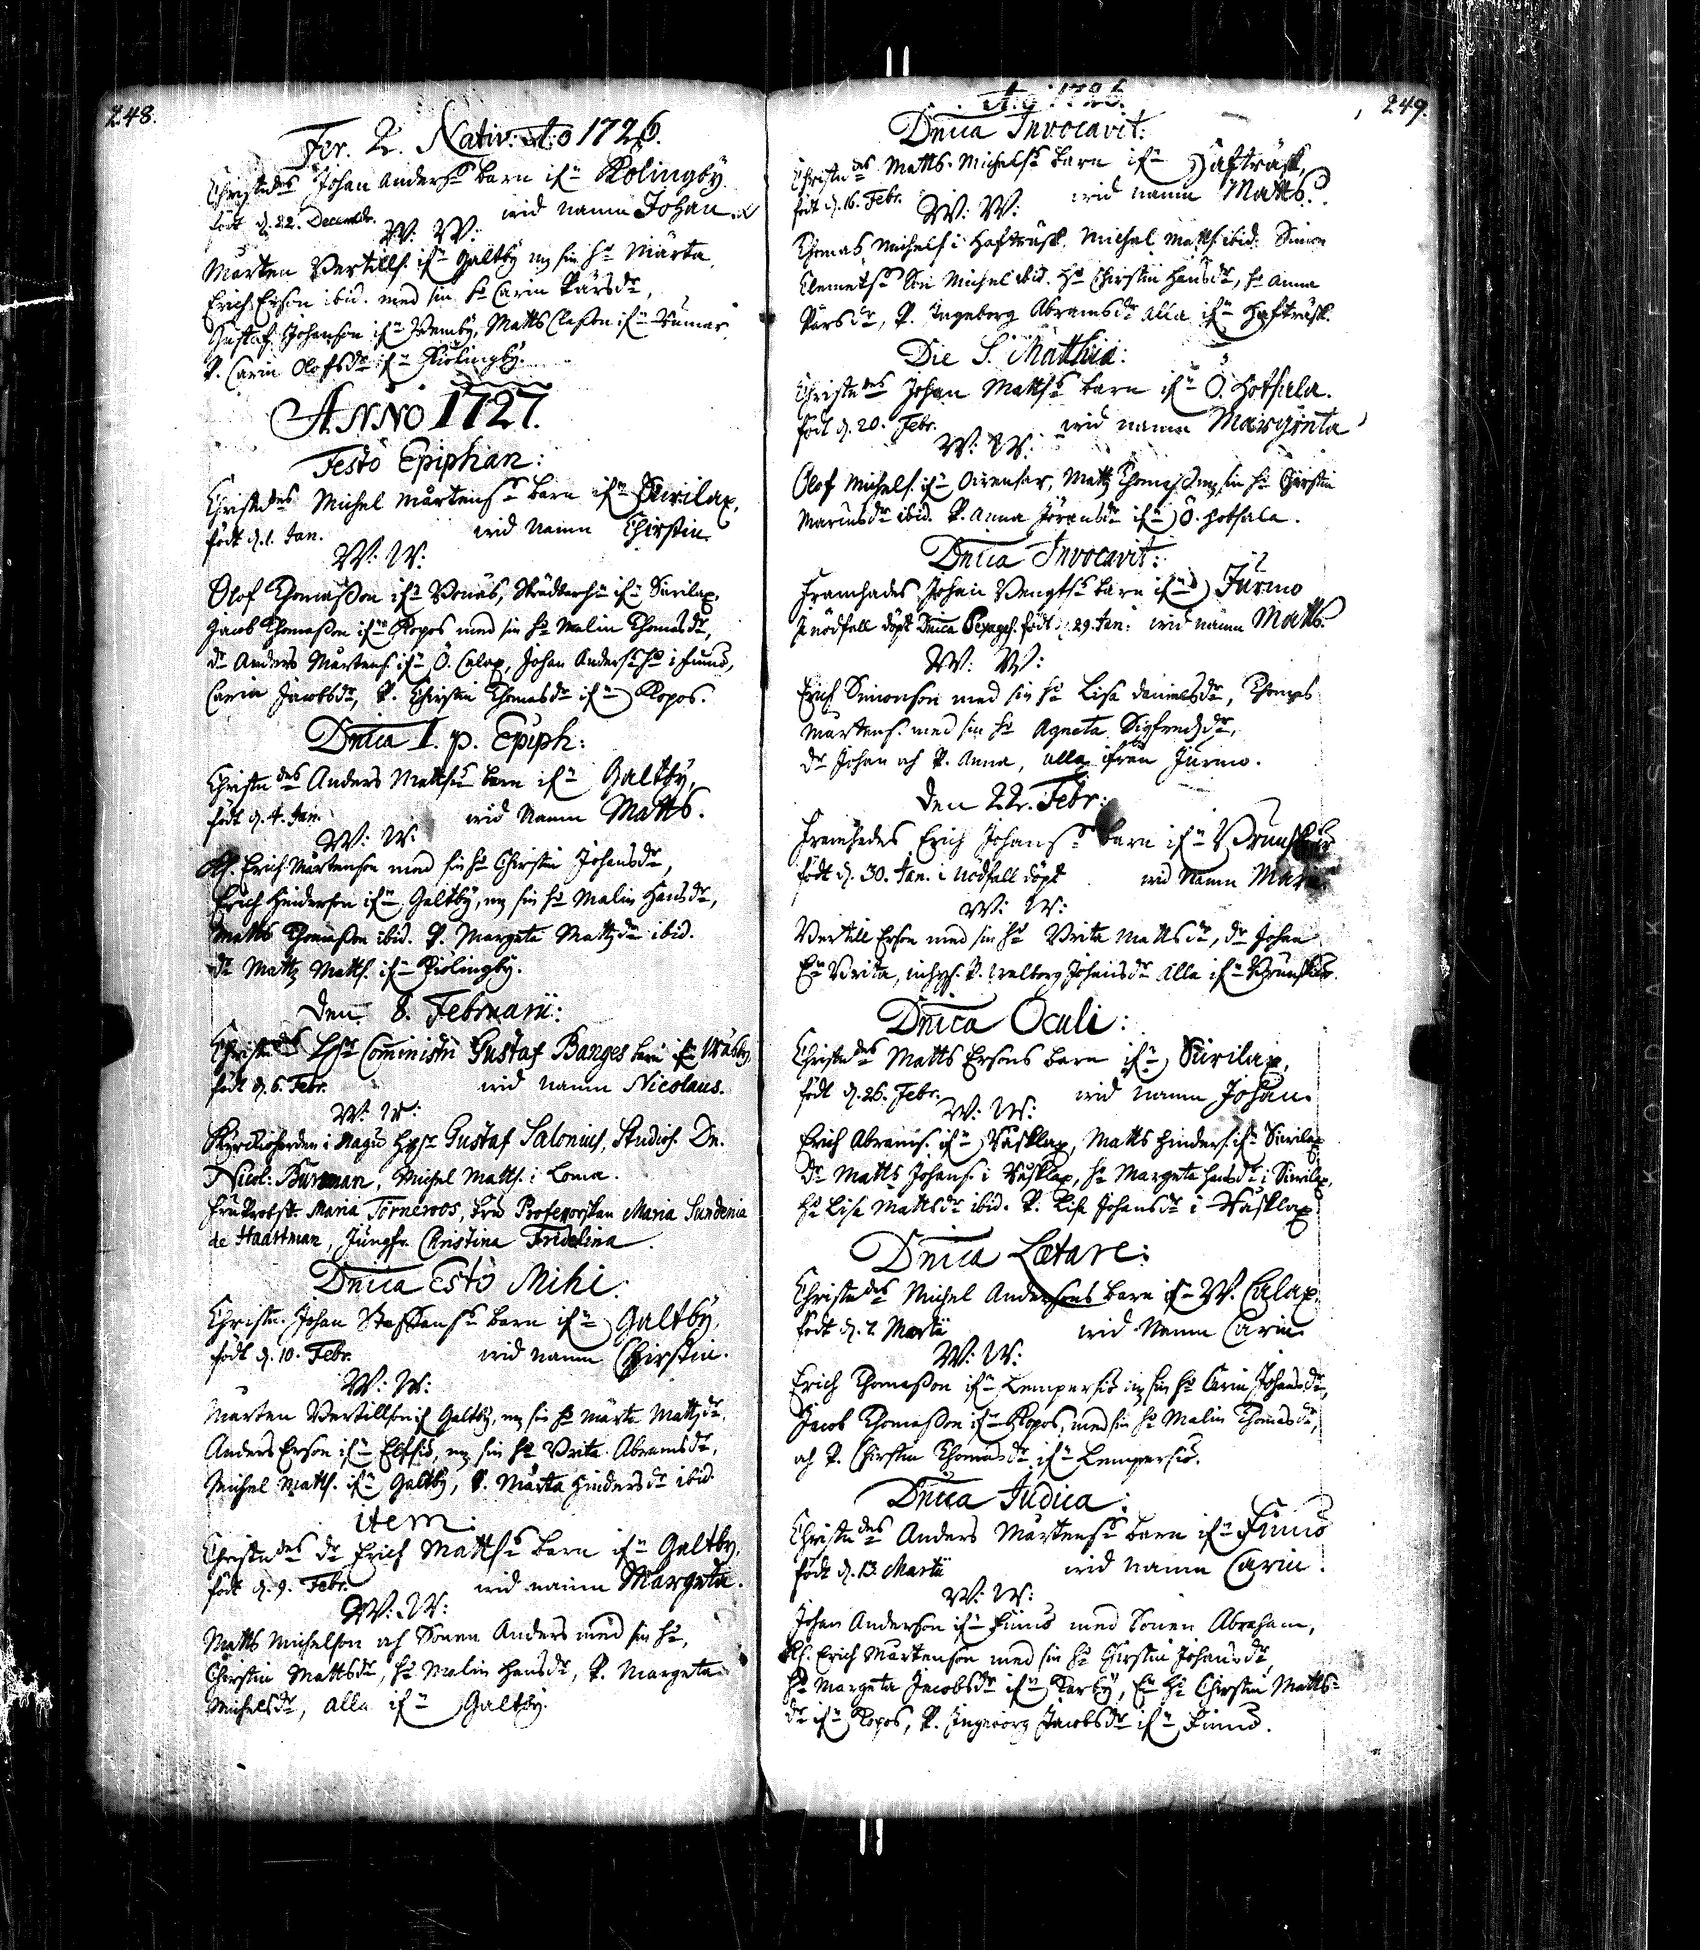 248.
Fer. 2. Nativ. Ao 1726.
Christndes Johan Anderss barn ifn Kölingby
född d. 22. Decembr. wid namn Johan.
W: W:
Mårten Bertills. ifn Galtby mz sin h. Märta,
Erich Erson ibid. med sin h. Carin Pärsdr,
Gustaf Johanson ifn Wemby, Matts Claßon ifn
P. Carin Olofsdr ifn Kiölingby.
ANNO 1727.
Festo Epiphan:
Christndes Michel Mårtenss barn ifn Surilax,
född d. 1. Jan. wid namn Chirstin.
W: W:
Olof Thomaßon ifn ifn Surilax,
Jacob Thomaßon ifn Kopos med sin h. Malin Thomasdr,
dr Anders Mårtens. ifn Ö. Calax, Johan Anderss i Finnö,
Carin Jacobsdr, P. Chirstin Thomasdr ifn Kopos.
Dnica I. p. Epiph:
Christndes Anders Mattss barn ifn Galtby,
född d. 4. Jan. wid Namn Matts.
W: W:
Erich Mårtenson med sin h. Chirstin Johansdr,
Erich Hinderson ifn Galtby, mz sin h. Malin Hansdr,
Matts Thomaßon ibid. P. Margeta Mattzdr ibid.
dr Mattz Matts. ifn Kiölingby.
Den 8. Februarii:
Christndes Comministri Gustaf Banges barn ifn
född d. 6. Febr. wid namn Nicolaus.
W: W:
Kyrckioherden i Nagu Gustaf Salonius, Studios. Dn.
Nicol: Burman, Michel Matts. i Loma.
Fru Probst. Maria Törneroos, Fru Profeßorskan Maria Sundenia
de Haartman, Jungfr. Christina Fridelina.
Dnica Esto Mihi.
Christn. Johan Staffanss barn ifn Galtby,
född d. 10. Febr. wid namn Chirstin.
W: W:
Mårten Bertillson if Galtby, mz sin h. Märta Mattzdr.
Anders Erson ifn mz sin h. Brita Abramsdr,
Michel Matts. ifn Galtby, P. Märta Hindersdr ibid.
item:
Christndes dr Erich Mattss barn ifn Galtby,
född d. 9. Febr. wid namn Margeta.
W: W:
Matts Michelson och Sonen Anders med sin h.,
Chirstin Mattsdr, h. Malin Hansdr, P. Margeta
Michelsdr, alla ifn Galtby.
249.
Ao 1726.
Dnica Invocavit:
Christndes Matts Michelss barn ifn Hafträsk,
född d. 16. Febr. wid namn Matts.
W: W:
Thomas Michels. i Hafträsk, Michel Matts. ibid. Simon
Clemetss Son Michel ibid. h. Chirstin Hansdr, h. Anna
Pärsdr, P. Ingeborg Abramsdr alla ifn Hafträsk.
Die S. Matthiæ:
Christndes Johan Mattss barn ifn Ö. Hofsala.
född d. 20. Febr. wid namn Margreta
W: W:
Olof Michels. ifn Matts Thomaß. mz sin h. Chirstin
ibid. P. Anna Jöransdr ifn Ö. Hofsala.
Dnica Invocavit:
Framhades Johan Bengtss barn ifn Jurmo
i nödfall döpt född d. 29. Jan: wid namn Matts.
W: W:
Erich Simonson med sin h. Lisa Danielsdr, Thomas
Mårtens. med sin h. Agneta Sigfredzdr,
dr Johan och P. Anna, alla ifrån Jurmo.
Den 22. Febr:
Framhades Erich Johanss barn ifn Brunskär
född d. 30. Jan. i nödfall döpt wid Namn
W: W:
Bertill Erson med sin h. Brita Mattsdr, dr Johan
En Brita, P. Walborg Johansdr alla ifn Brunskär.
Dnica Oculi:
Christndes Matts Ersons barn ifn Surilax,
född d. 26. Febr. wid namn Johan.
W: W:
Erich Abrams. ifn Väsklax, Matts Hinders. ifn Surilax
dr Matts Johans. i Väsklax, h. Margeta Hansdr i Surilax,
h. Lisa Mattsdr ibid. P. Lisa Johansdr i Väsklax
Dnica Lætare:
Christndes Michel Andersons barn ifn W. Calax.
född d. 7. Martii wid Namn Carin
W: W:
Erich Thomaßon ifn Lempersiö mz sin h. Carin Johansdr,
Jacob Thomaßon ifn Kopos, med sin h. Malin Thomasdr,
och P. Chirstin Thomasdr ifn Lempersiö.
Dnica Judica:
Christndes Anders Mårtenss barn ifn Finnö
född d. 13. Martii wid namn Carin.
W: W:
Johan Anderson ifn Finnö med Sonen Abraham,
Erich Mårtenson med sin h. Chirstin Johansdr,
h. Margeta Jacobsdr ifn En h. Chirstin Matts-
dr ifn Kopos, P. Ingeborg Jacobsdr ifn Finnö.
KODAK SAFETY FILM